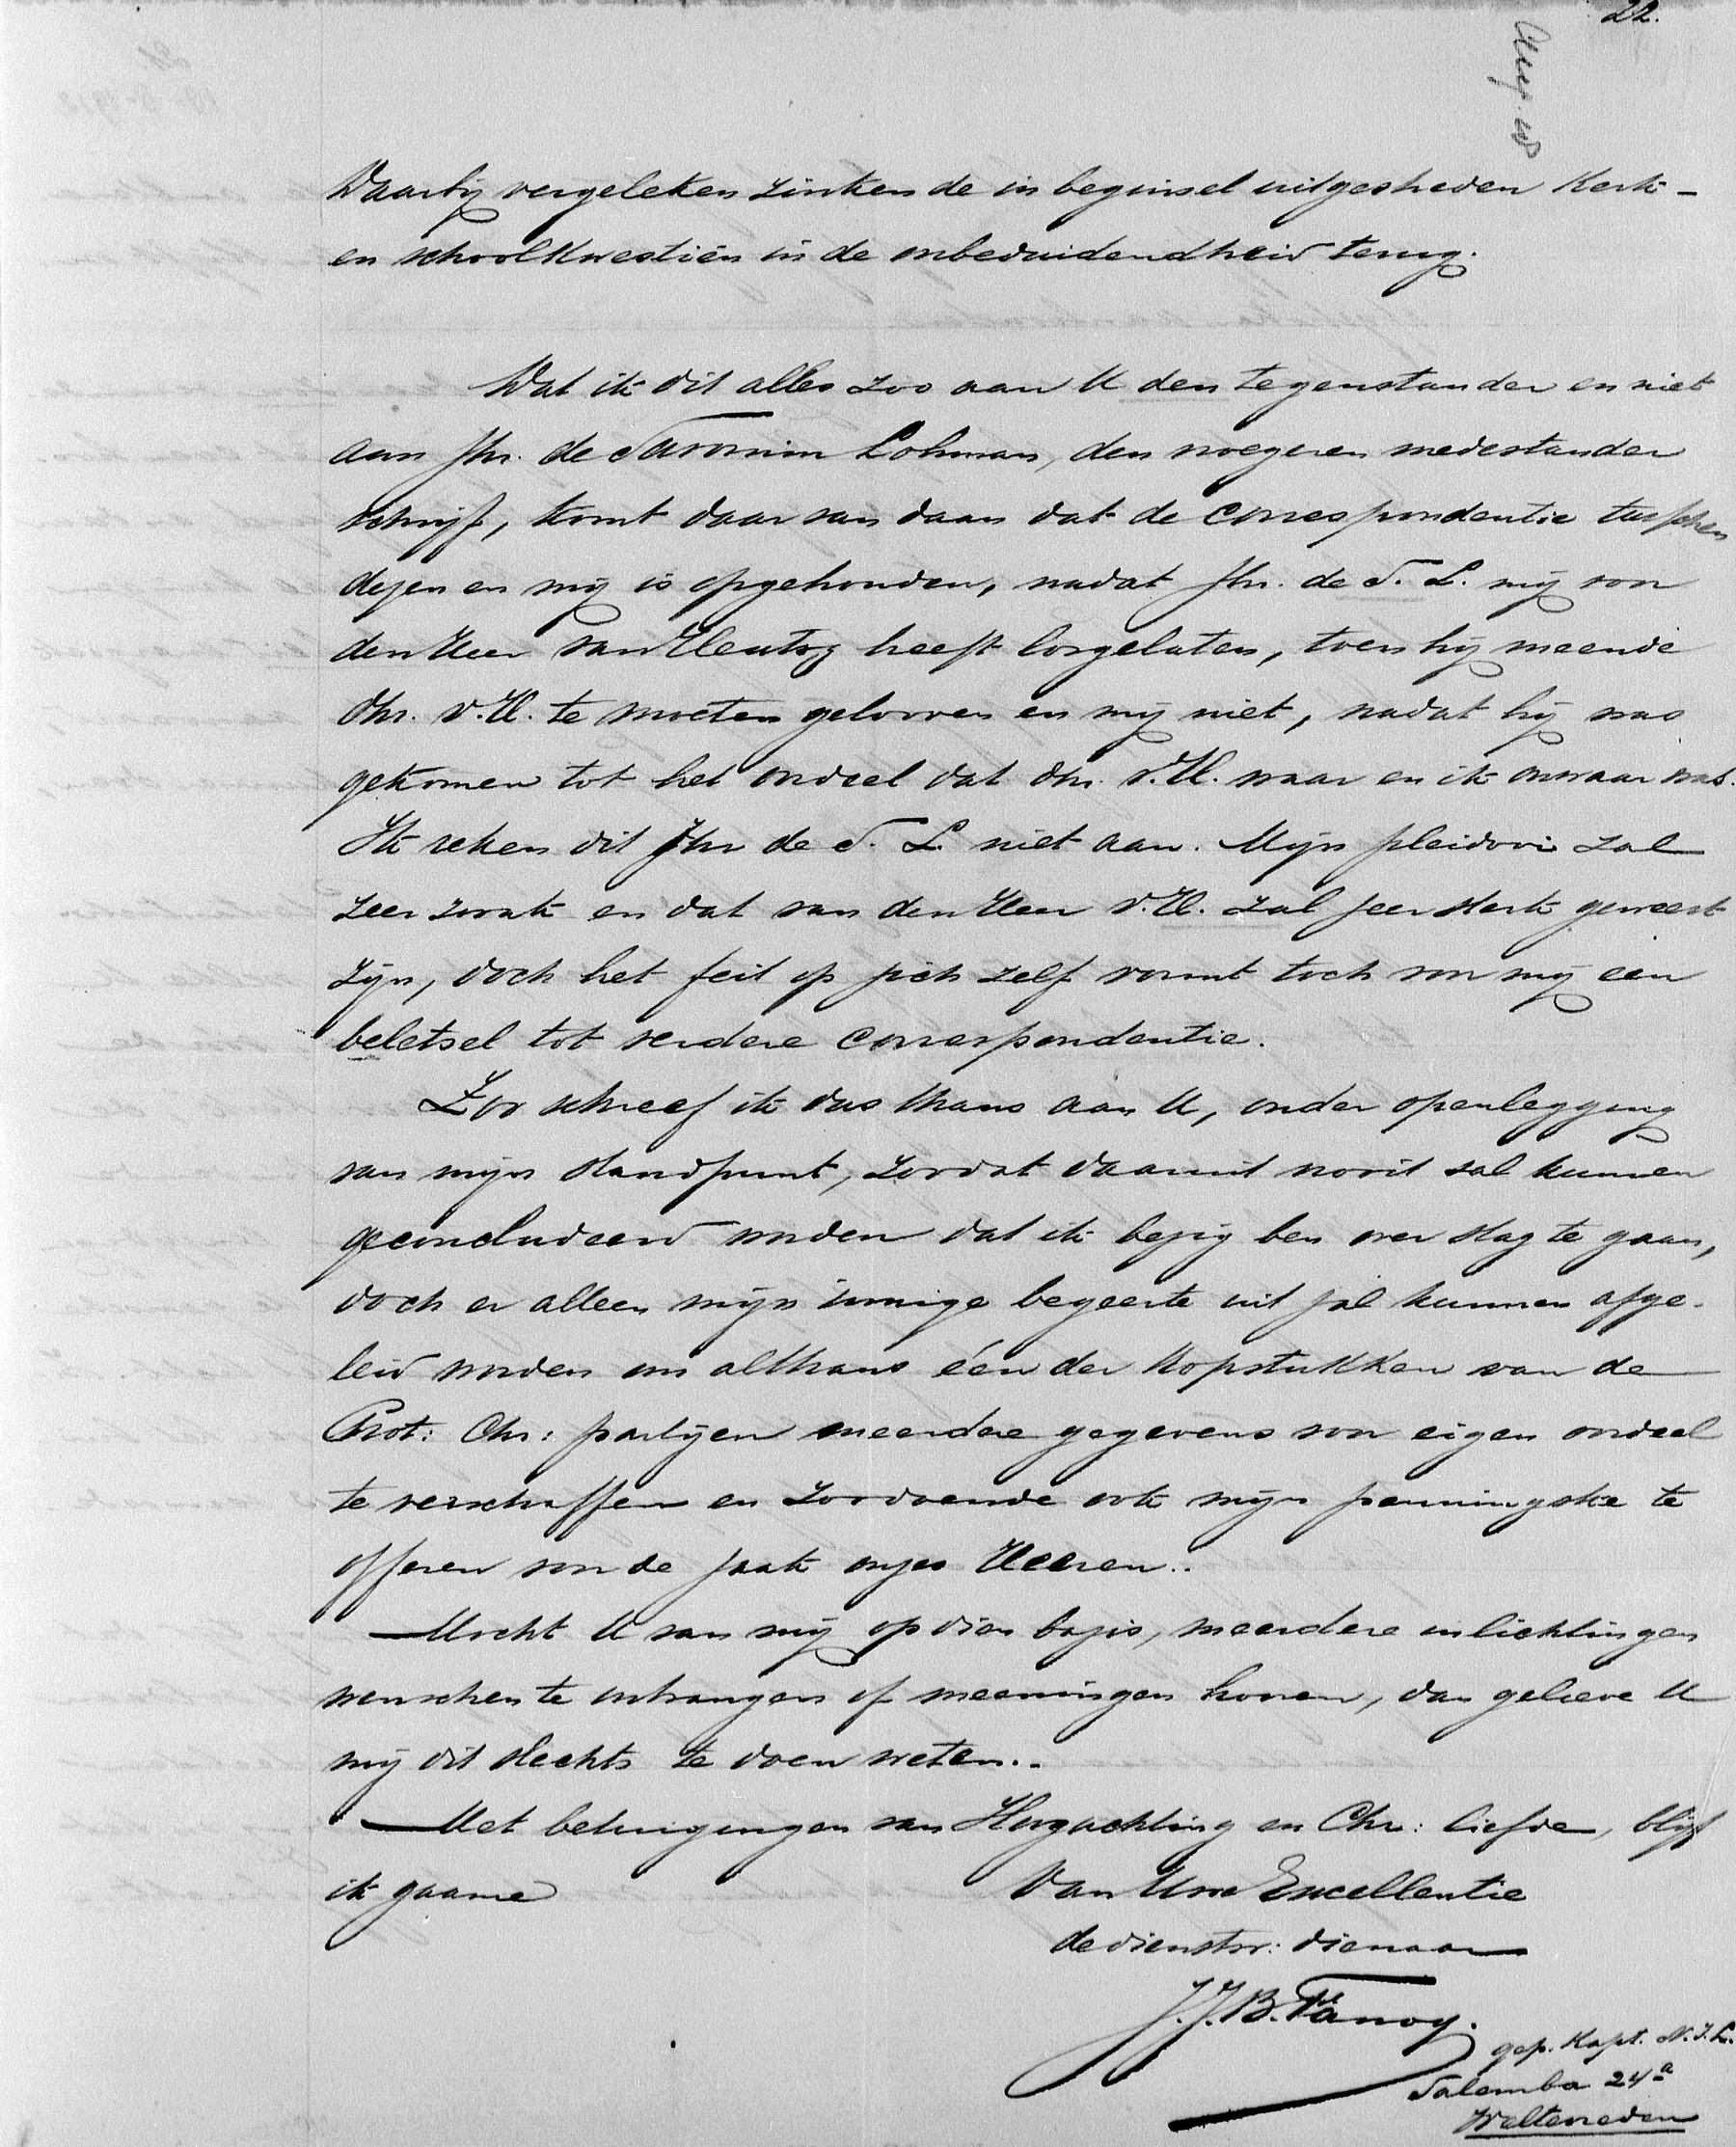 22.
Waarbij vergeleken zinken de in beginsel uitgestreden Kerk-
en schoolkwestiën in de onbeduidendheid terug.
Dat ik dit alles zoo aan U den tegenstander en niet
aan Jhr. de Savornin Lohman, den vroegeren medestander
schrijf, komt daar van daan dat de correspondentie tusschen
dezen en mij is opgehouden, nadat Jhr. de S. L. mij voor
den Heer van Heutsz heeft losgelaten, toen hij meende
dhr. v. H. te moeten gelooven en mij niet, nadat hij was
gekomen tot het oordeel dat dhr. v. H. waar en ik onwaar was.
Ik reken dit Jhr de S. L. niet aan. Mijn pleidooi zal
zeer zwak en dat van den Heer v. H. zal zeer sterk geweest
zijn, doch het feit op zich zelf vormt toch voor mij een
beletsel tot verdere correspondentie.
Zoo schreef ik dus thans aan U, onder openlegging
van mijn standpunt, zoodat daaruit nooit zal kunnen
geconcludeerd worden dat ik bezig ben over stag te gaan,
doch er alleen mijn innige begeerte uit zal kunnen afge-
leid worden om althans één der kopstukken van de
Prot: Chr: partijen meerdere gegevens voor eigen oordeel
te verschaffen en zoodoende ook mijn penningske te
offeren voor de zaak onzes Heeren..
Mocht U van mij op dien bazis, meerdere inlichtingen
wenschen te ontvangen of meeningen hooren, dan gelieve U
mij dit slechts te doen weten..
Met betuigingen van Hoogachting en Chr: liefde, blijf
ik gaarne
Van Uwe Excellentie
de dienstw: dienaar
J.J.B. Fanoy.
gep. Kapt. N.I.L.
Salemba 24a
Weltevreden